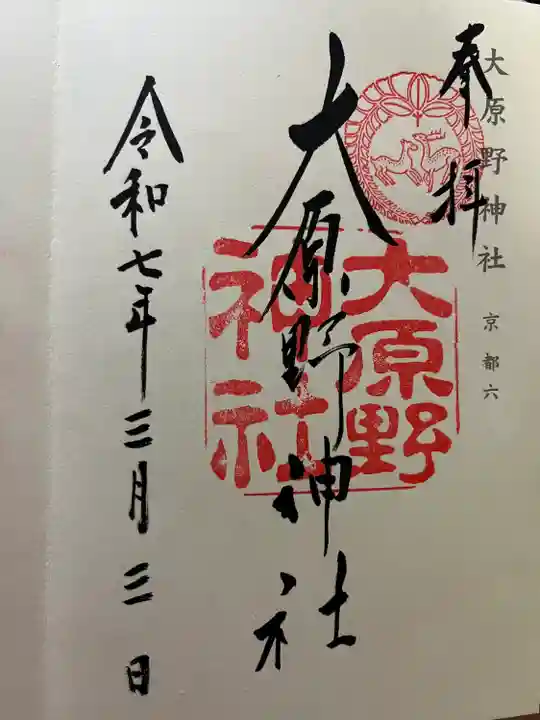 大原野神社 京都六
奉拝
大原野神社
大原野
神社
令和七年三月三日